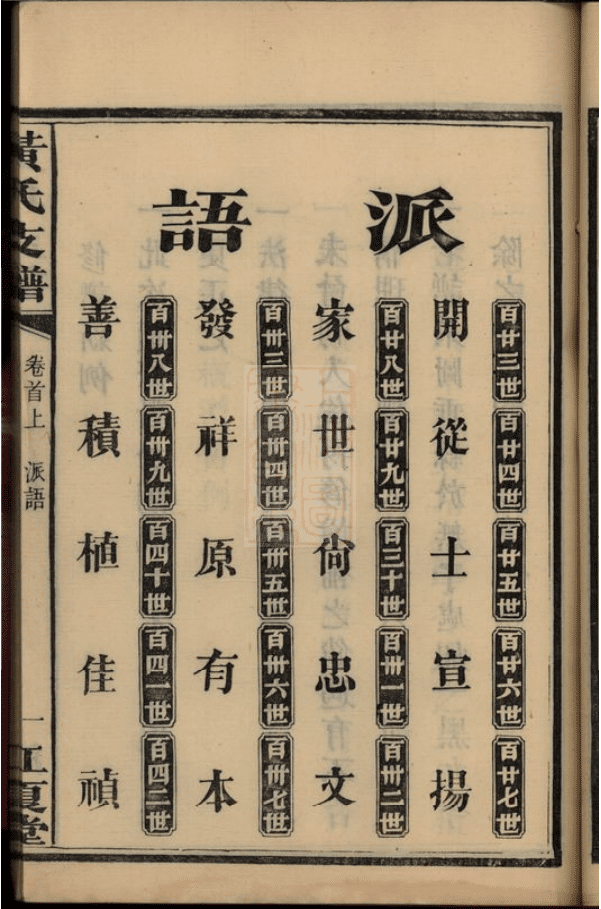 派語
百廿三世 百廿四世 百廿五世 百廿六世 百廿七世
開從士宣揚
百廿八世 百廿九世 百三十世 百卅一世 百卅二世
家世尙忠文
百卅三世 百卅四世 百卅五世 百卅六世 百卅七世
發祥原有本
百卅八世 百卅九世 百四十世 百四一世 百四二世
善積植佳禎
黃氏支譜
卷首上 派語
一
江夏堂